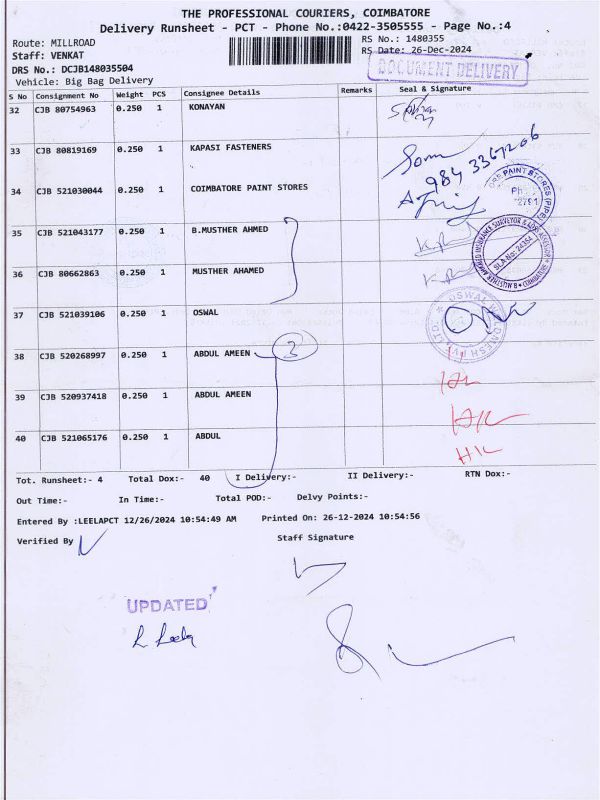 THE PROFESSIONAL COURIERS, COIMBATORE
Delivery Runsheet - PCT - Phone No.:0422-3505555 - Page No.:4
Route: MILLROAD
RS No.: 1480355
Staff: VENKAT
RS Date: 26-Dec-2024
DRS No.: DCJB148035504
DOCUMENT DELIVERY
Vehicle: Big Bag Delivery
S No Consignment No Weight PCS Consignee Details Remarks Seal & Signature
32 CJB 80754963 0.250 1 KONAYAN
33 CJB 80819169 0.250 1 KAPASI FASTENERS
34 CJB 521030044 0.250 1 COIMBATORE PAINT STORES
PAINT STORES
35 CJB 521043177 0.250 1 B.MUSTHER AHMED
36 CJB 80662863 0.250 1 MUSTHER AHAMED
37 CJB 521039106 0.250 1 OSWAL
OSWAL
38 CJB 520268997 0.250 1 ABDUL AMEEN
3
39 CJB 520937418 0.250 1 ABDUL AMEEN
40 CJB 521065176 0.250 1 ABDUL
Tot. Runsheet:- 4 Total Dox:- 40 I Delivery:- II Delivery:- RTN Dox:-
Out Time:- In Time:- Total POD:- Delvy Points:-
Entered By :LEELAPCT 12/26/2024 10:54:49 AM Printed On: 26-12-2024 10:54:56
Verified By Staff Signature
UPDATED